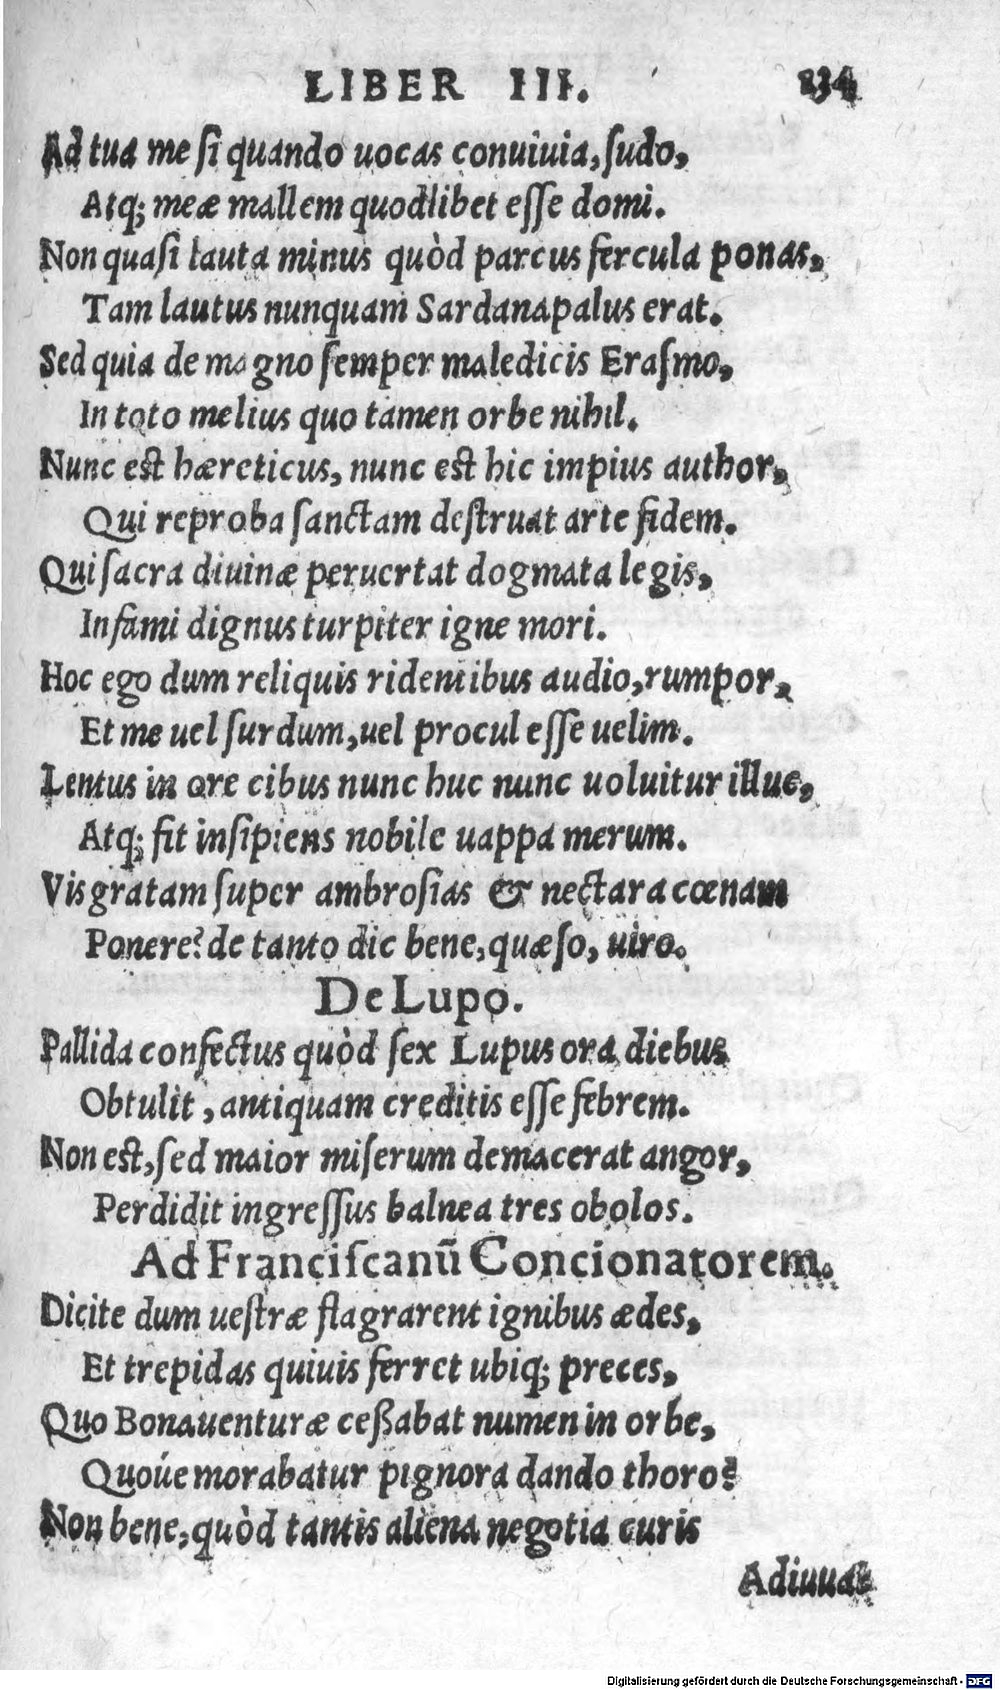 LIBER III. 234
Ad tua me ſi quando uocas conuiuia, ſudo,
Atq; meæ mallem quodlibet eſſe domi.
Non quaſi lauta minus quòd parcus fercula ponas,
Tam lautus nunquam Sardanapalus erat.
Sed quia de magno ſemper maledicis Eraſmo,
In toto melius quo tamen orbe nihil.
Nunc est hæreticus, nunc est hic impius author,
Qui reproba ſanctam deſtruat arte fidem.
Qui ſacra diuinæ peruertat dogmata legis,
Infami dignus turpiter igne mori.
Hoc ego dum reliquis ridentibus audio, rumpor,
Et me uel ſurdum, uel procul eſſe uelim.
Lentus in ore cibus nunc huc nunc uoluitur illuc,
Atq; fit inſipiens nobile uappa merum.
Vis gratam ſuper ambroſias & nectara cœnam
Ponere? de tanto dic bene, quæſo, uiro.
De Lupo.
Pallida confectus quòd ſex Lupus ora diebus
Obtulit, antiquam creditis eſſe febrem.
Non est, ſed maior miſerum demacerat angor,
Perdidit ingreſſus balnea tres obolos.
Ad Franciſcanū Concionatorem.
Dicite dum ueſtræ flagrarent ignibus ædes,
Et trepidas quiuis ferret ubiq; preces,
Quo Bonauenturæ ceßabat numen in orbe,
Quoúe morabatur pignora dando thoro?
Non bene, quòd tantis aliena negotia curis
Adiuuat
Digitalisierung gefördert durch die Deutsche Forschungsgemeinschaft - DFG